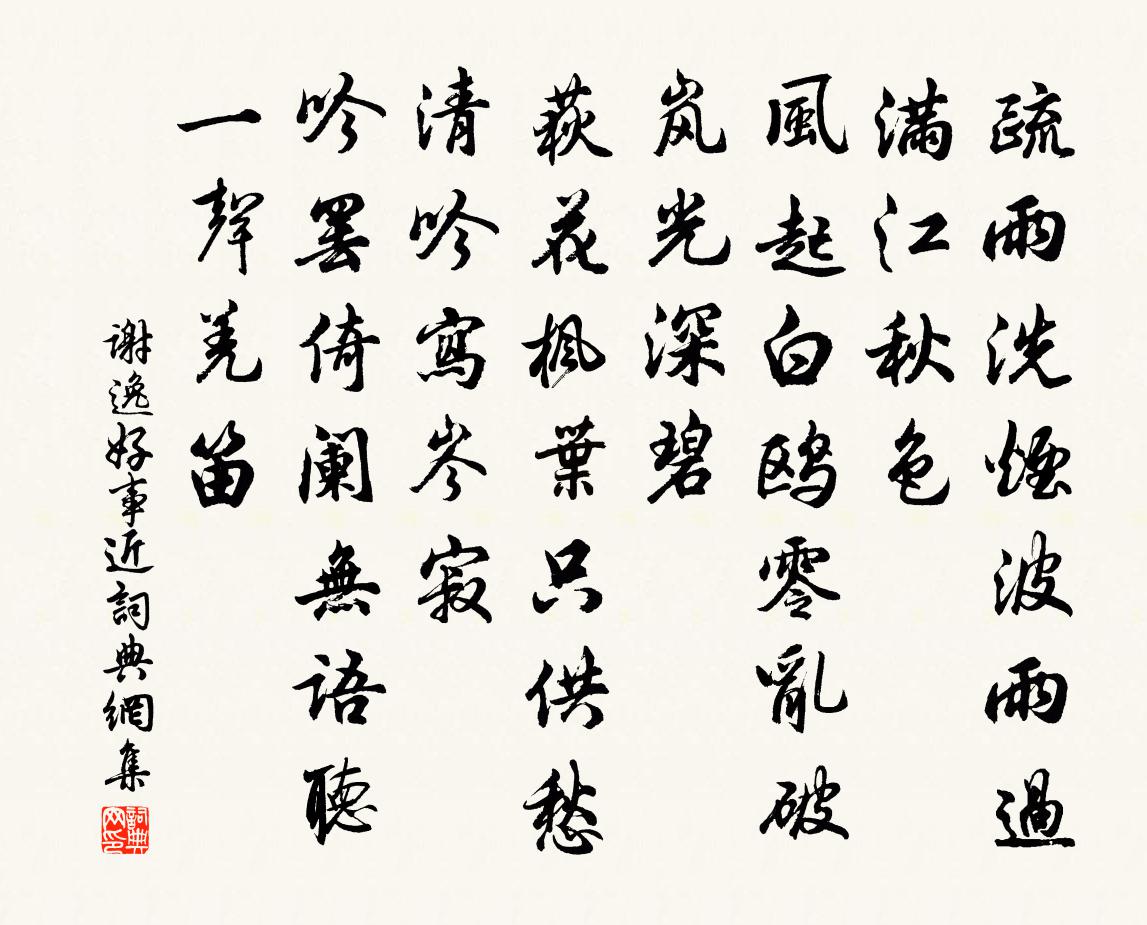 疏雨洗煙波雨過
滿江秋色
風起白鸥零亂破
岚光深碧
荻花楓葉只供愁
清吟寫岑寂
吟罢倚阑無語聽
一聲羌笛
谢逸好事近詞典網集
詞典网印